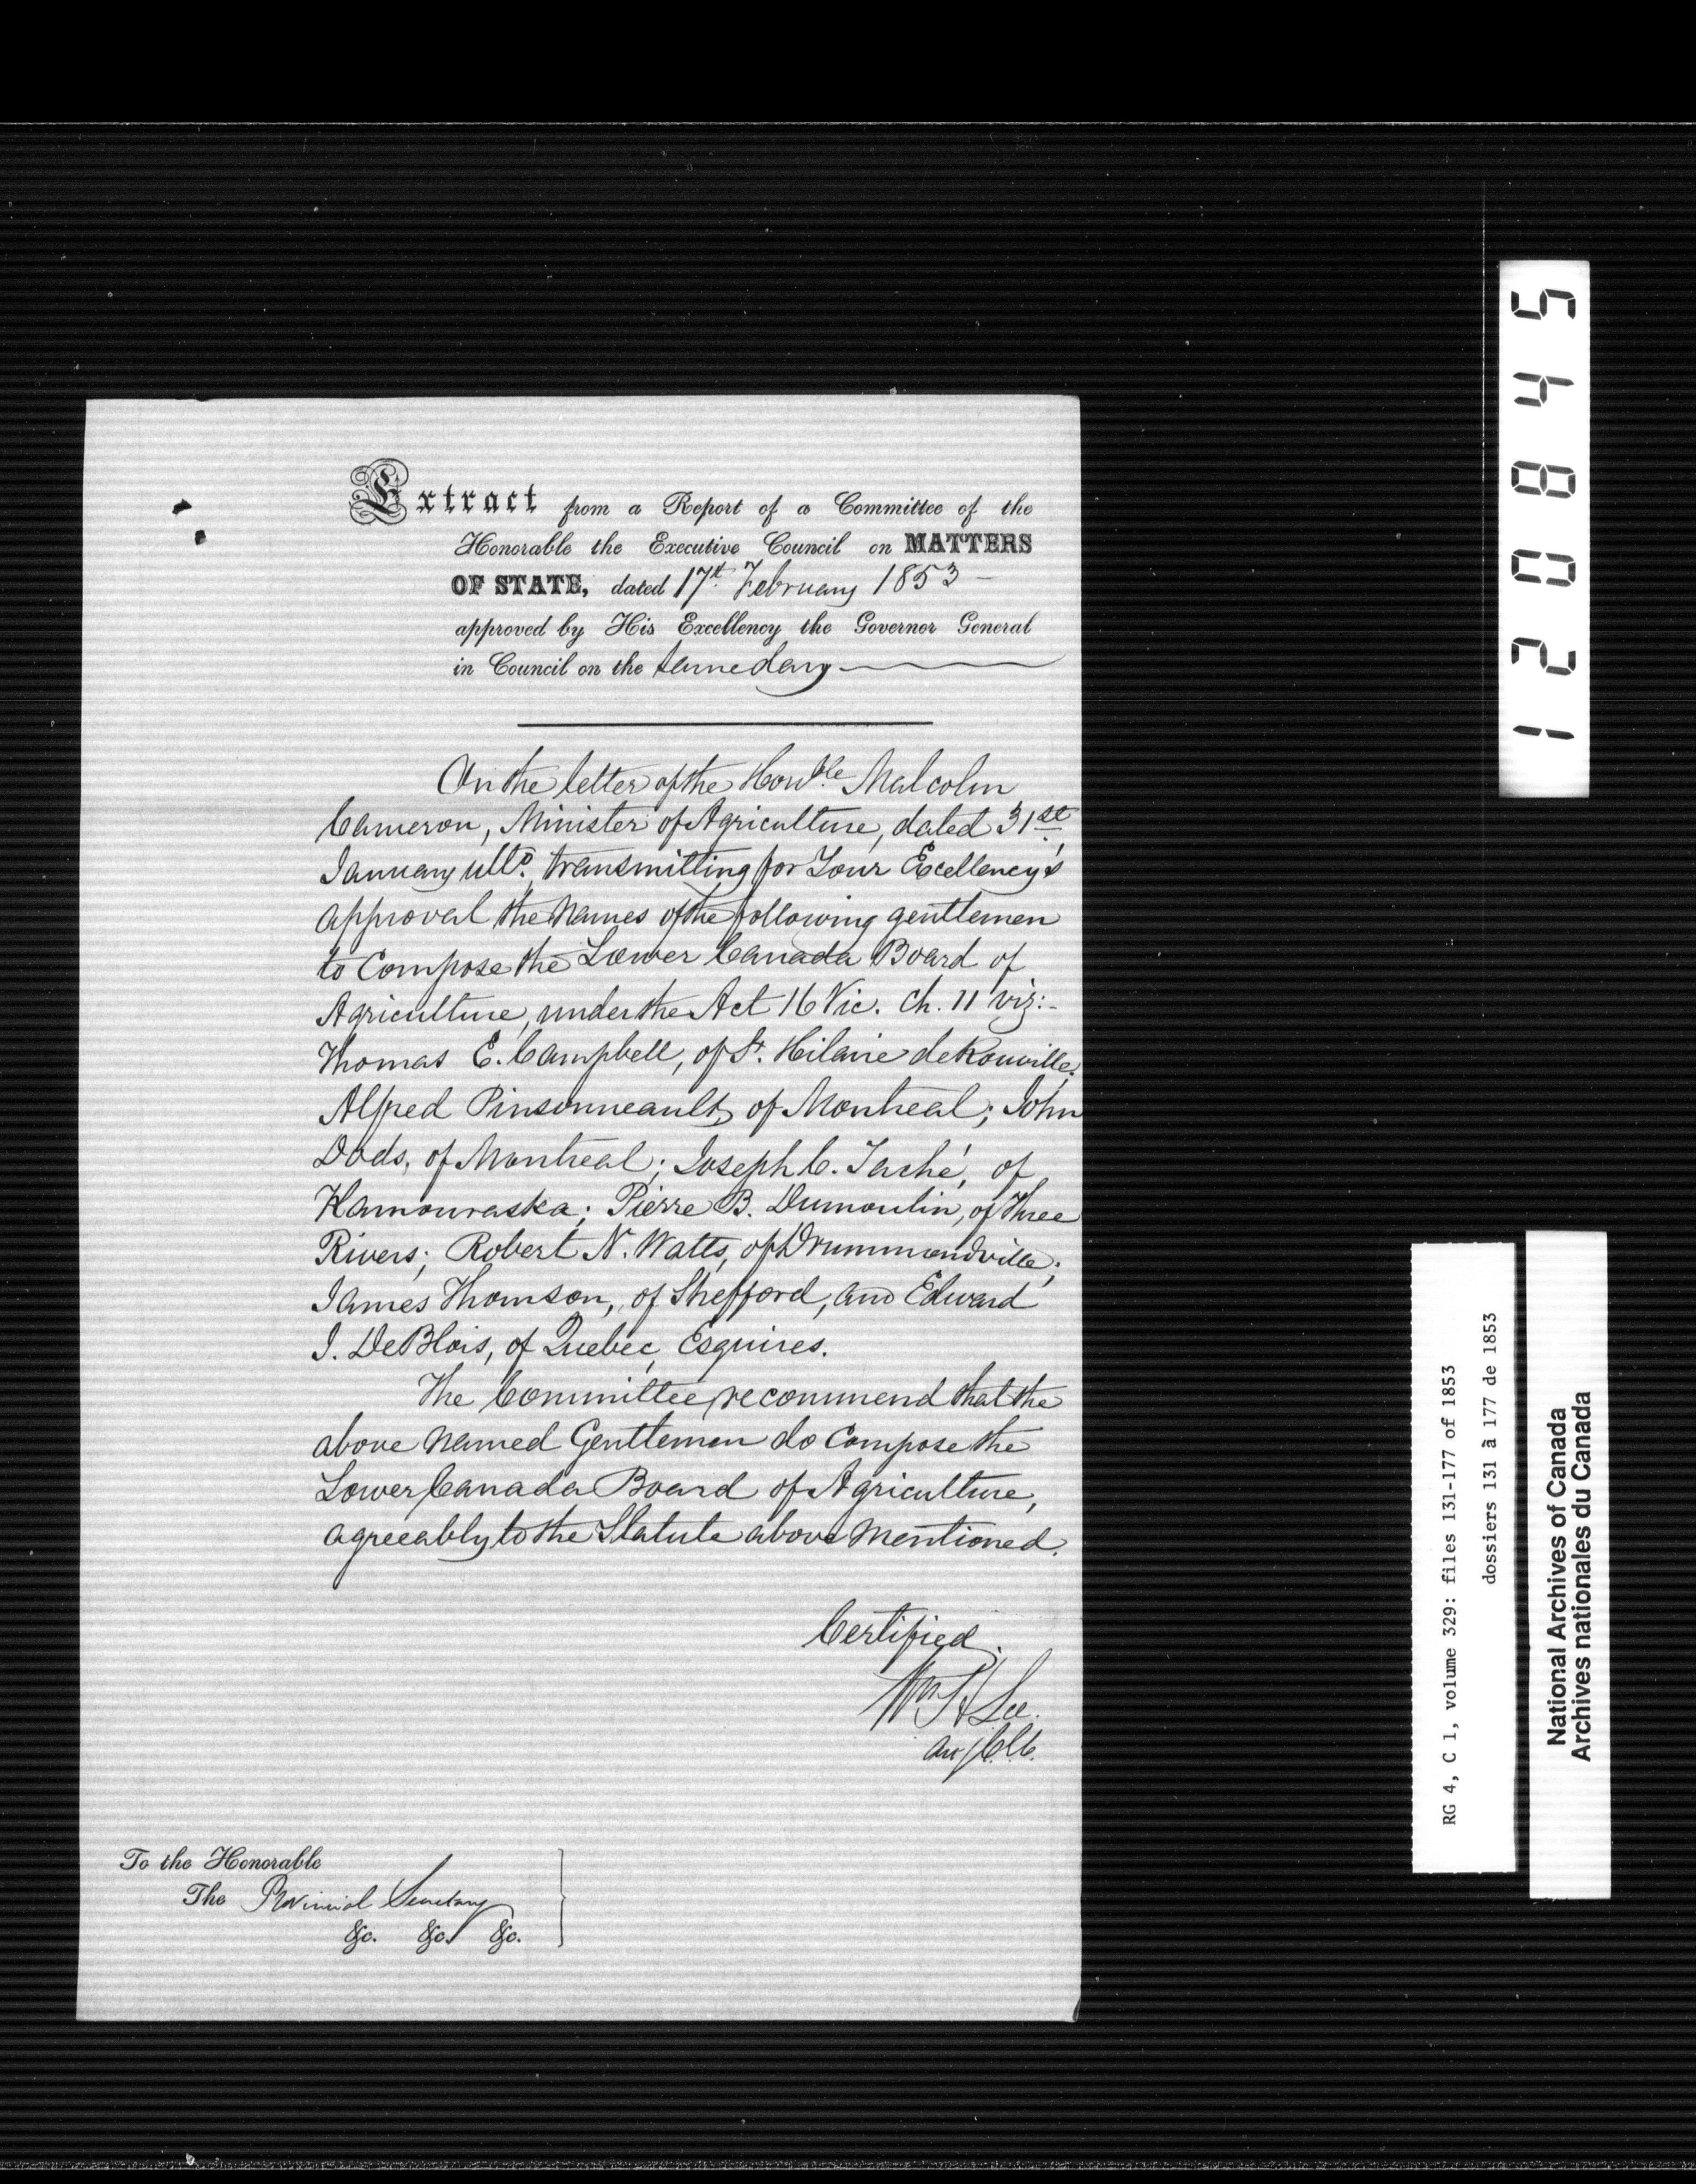 Extract from a Report of a Committee of the
Honorable the Executive Council on MATTERS
OF STATE, dated 17th February 1853 –
approved by His Excellency the Governor General
in Council on the same day
On the letter of the Honble Malcolm
Cameron, Minister of Agriculture, dated 31st
January ulto. transmitting for Your Excellency's
approval the Names of the following gentlemen
to Compose the Lower Canada Board of
Agriculture, under the Act 16 Vic. Ch. 11 viz:-
Thomas E. Campbell, of St. Hilaire de Rouville;
Alfred Pinsonneault, of Montreal; John
Dods, of Montreal; Joseph C. Taché, of
Kamouraska; Pierre B. Dumoulin, of Three
Rivers; Robert N. Watts, of Drummondville;
James Thomson, of Shefford, and Edward
J. DeBlois, of Quebec, Esquires.
The Committee recommend that the
above Named Gentlemen do Compose the
Lower Canada Board of Agriculture,
agreeably to the Statute above Mentioned.
Certified.
Wm H Lee.
To the Honorable
The Provincial Secretary
&c. &c. &c.
120845
RG 4, C 1, volume 329: files 131-177 of 1853
dossiers 131 à 177 de 1853
National Archives of Canada
Archives nationales du Canada